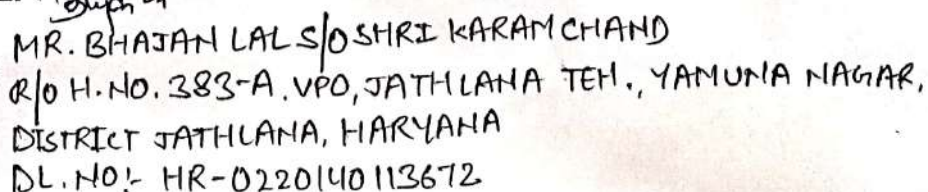 MR. BHAJAN LAL S/O SHRI KARAM CHAND
R/O H.NO. 383-A. VPO, JATHLANA TEH., YAMUNA NAGAR,
DISTRICT JATHLANA, HARYANA
DL. NO:- HR-0220140113672